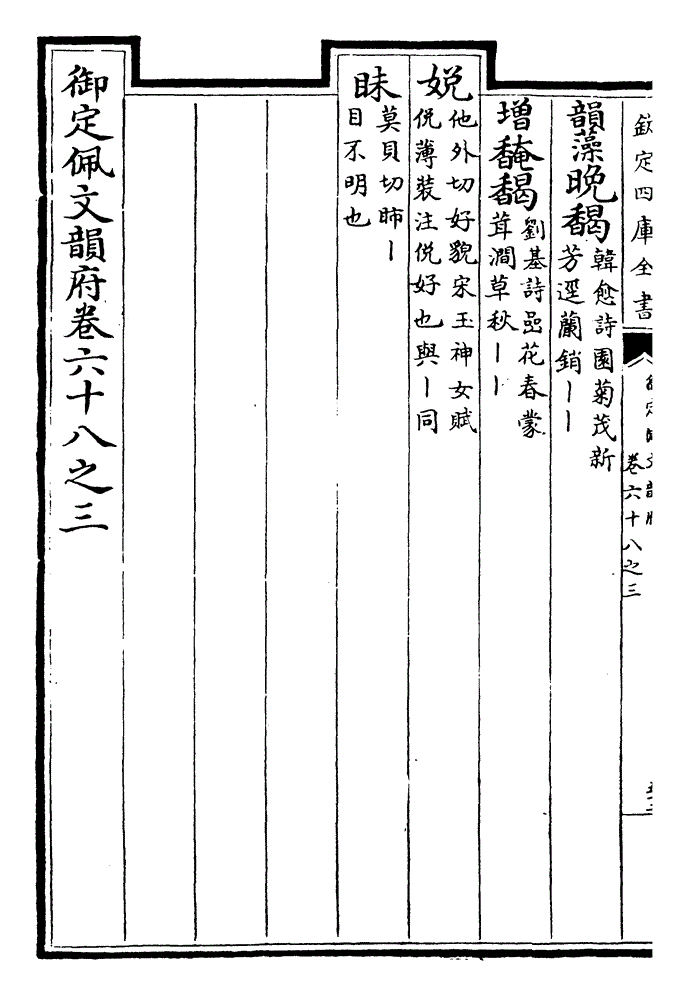 欽定四庫全書
卷六十八之三
韻藻晚馤韓愈詩園菊茂新
芳逕蘭銷丨丨
增馣馤劉基詩嵒花春蒙
茸澗草秋丨丨
娧他外切好貌宋玉神女賦
侻薄裝注侻好也與丨同
眛莫貝切丨
目不明也
御定佩文韻府卷六十八之三